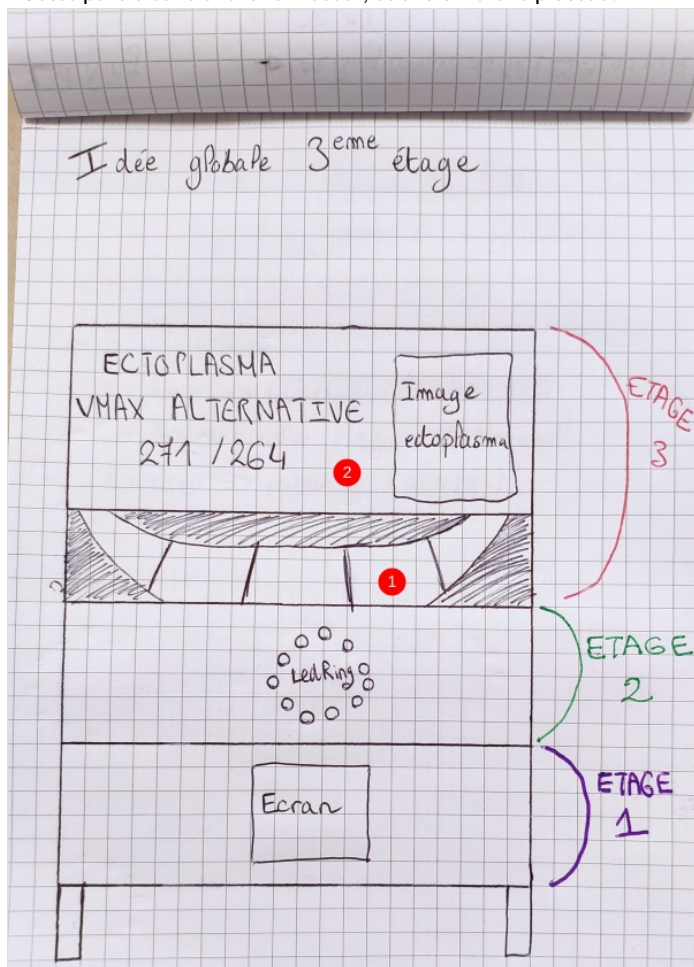 Idée globale 3eme étage
ECTOPLASMA
VMAX ALTERNATIVE
271 / 264
Image
ectoplasma
ETAGE
3
2
1
LedRing
ETAGE
2
Ecran
ETAGE
1